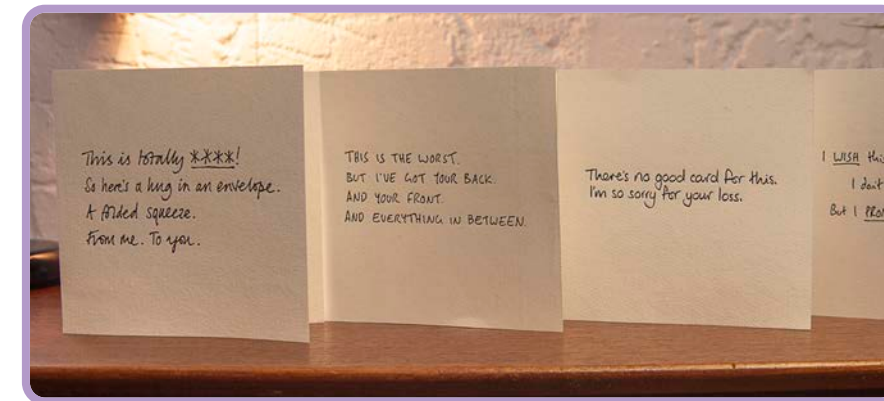 This is totally ****!
So here's a hug in an envelope.
A folded squeeze.
From me. To you.
THIS IS THE WORST.
BUT I'VE GOT YOUR BACK.
AND YOUR FRONT.
AND EVERYTHING IN BETWEEN.
There's no good card for this.
I'm so sorry for your loss.
I WISH this
I don't
But I